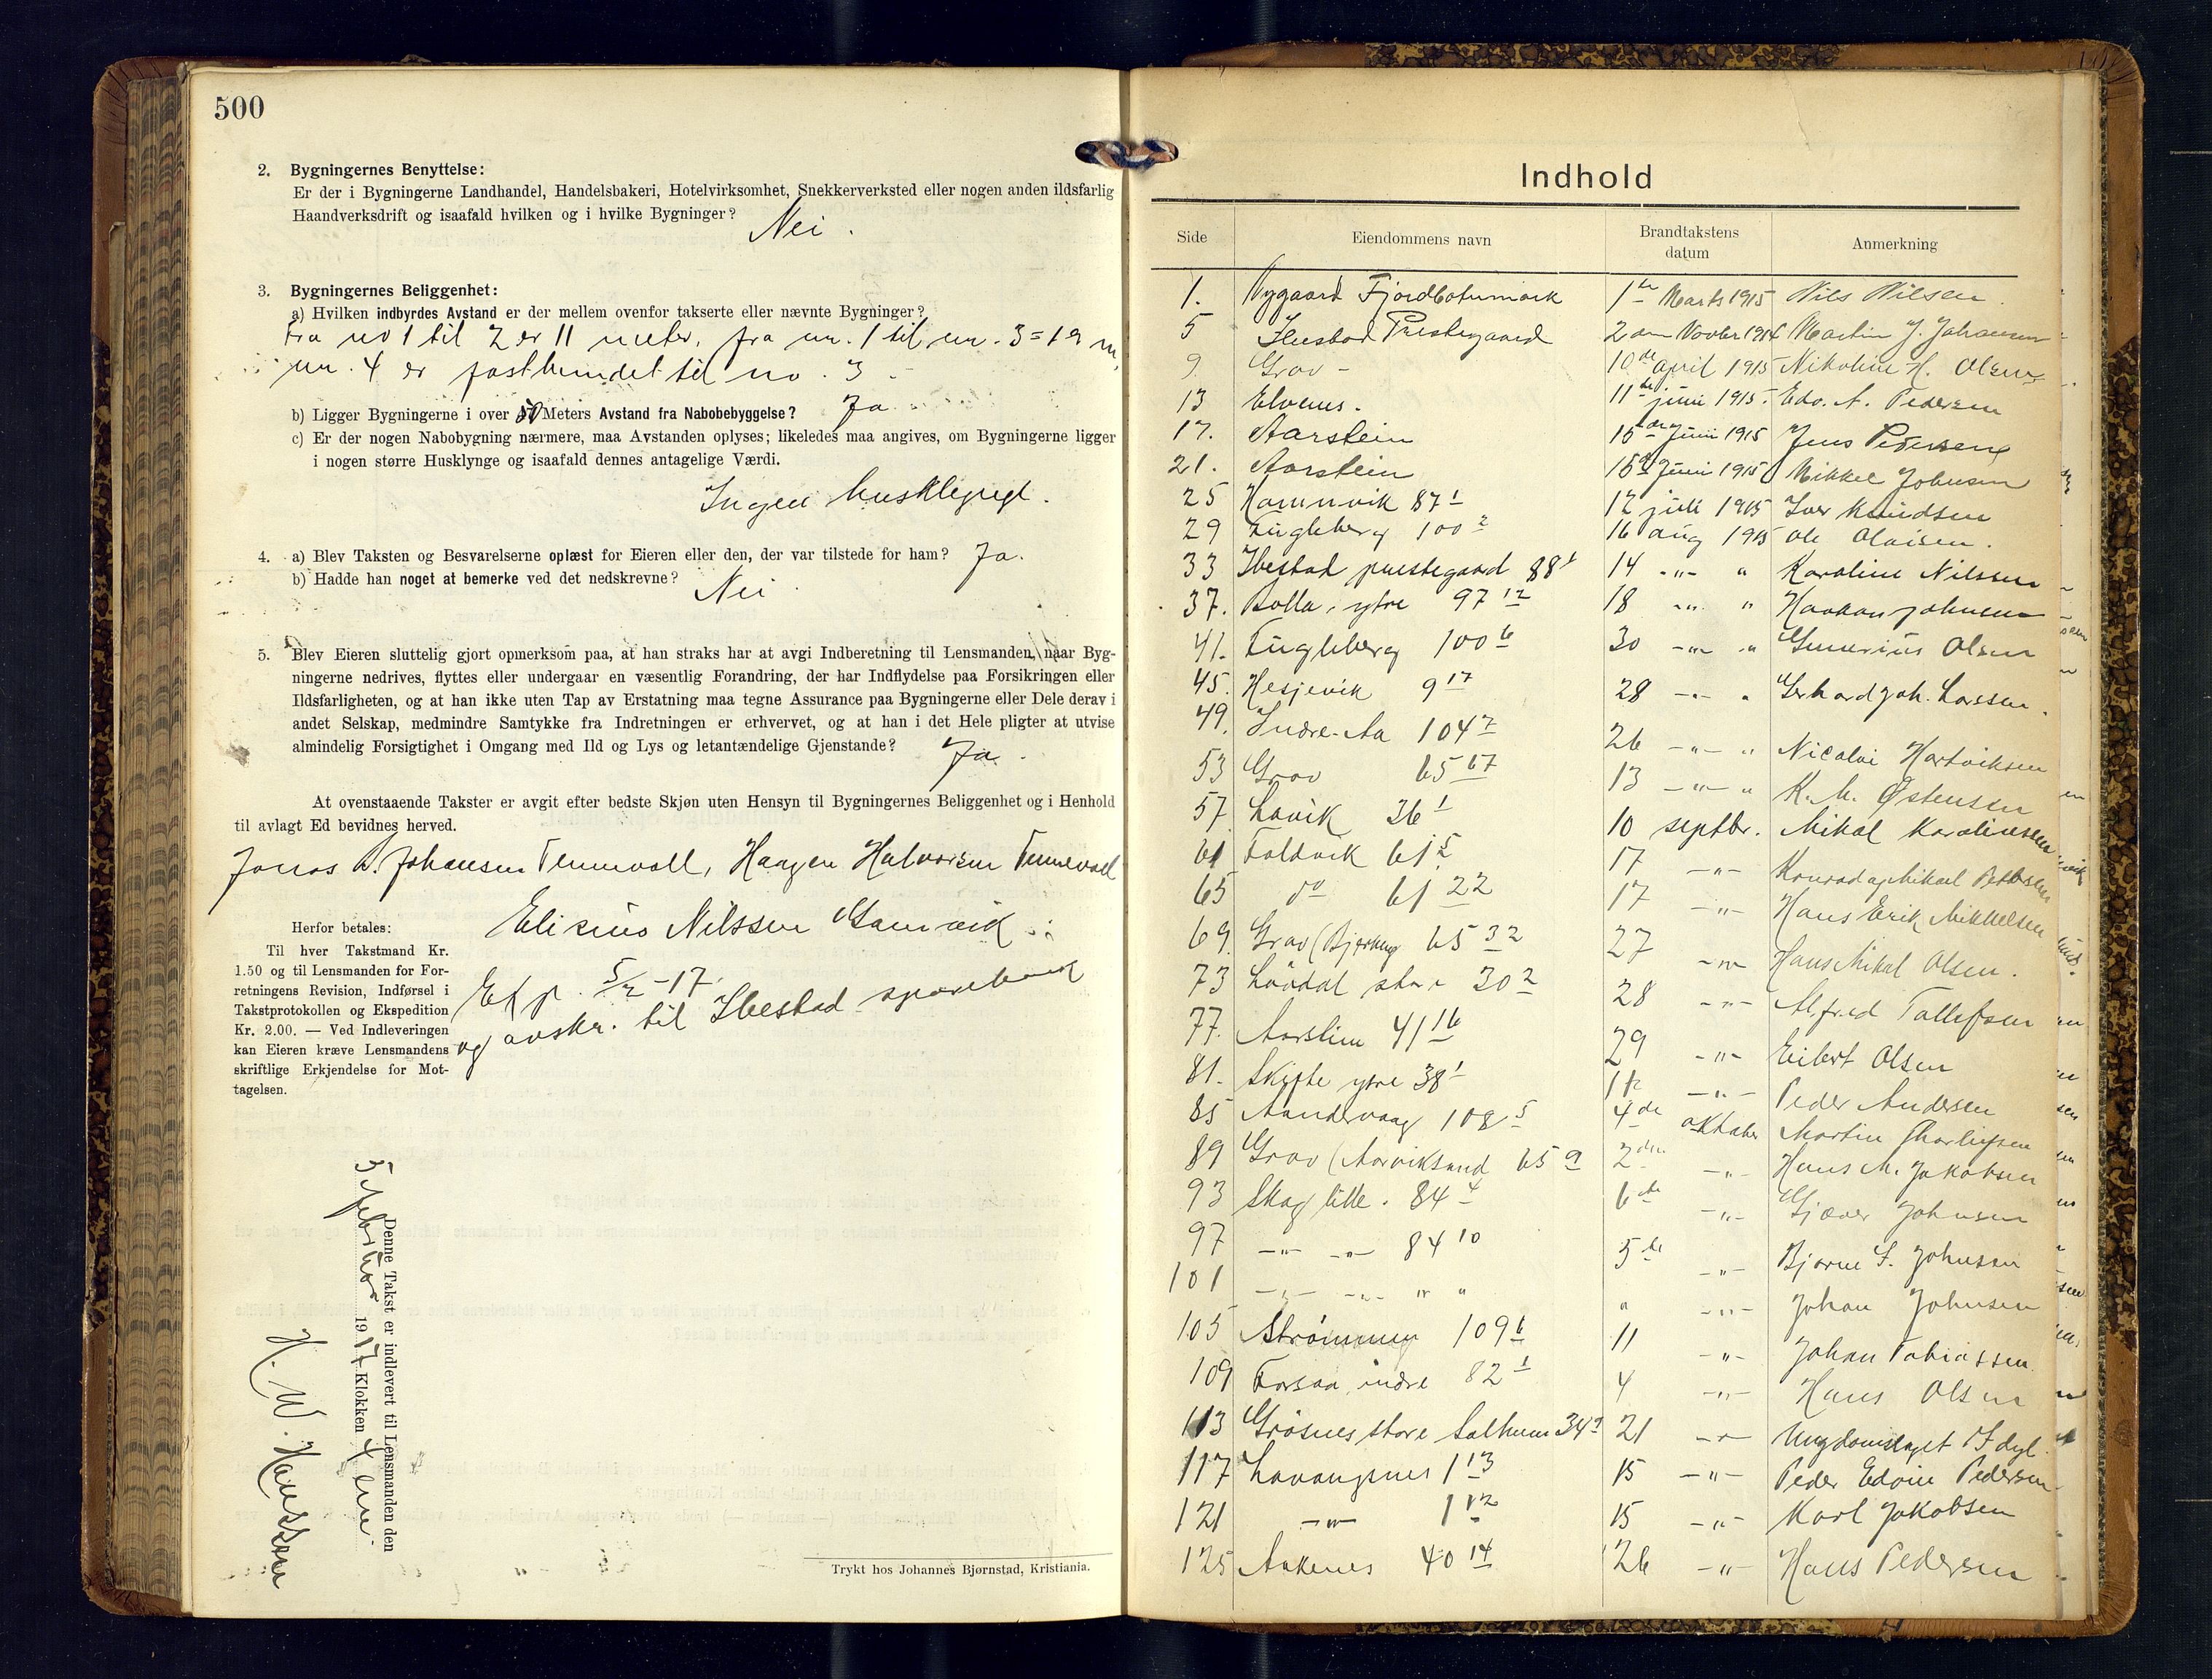 500
2. Bygningernes Benyttelse:
Er der i Bygningerne Landhandel, Handelsbakeri, Hotelvirksomhet, Snekkerverksted eller nogen anden ildsfarlig
Haandverksdrift og isaafald hvilken og i hvilke Bygninger?
Nei.
3. Bygningernes Beliggenhet:
a) Hvilken indbyrdes Avstand er der mellem ovenfor takserte eller nævnte Bygninger?
Fra no 1 til 2 er 11 meter, fra nr. 1 til nr. 3 = 19 m,
nr. 4 er fastbundet til no. 3.
b) Ligger Bygningerne i over Meters Avstand fra Nabobebyggelse? Ja
c) Er der nogen Nabobygning nærmere, maa Avstanden oplyses; likeledes maa angives, om Bygningerne ligger
i nogen større Husklynge og isaafald dennes antagelige Værdi.
Ingen
4. a) Blev Taksten og Besvarelserne oplæst for Eieren eller den, der var tilstede for ham? Ja.
b) Hadde han noget at bemerke ved det nedskrevne?
Nei
5. Blev Eieren sluttelig gjort opmerksom paa, at han straks har at avgi Indberetning til Lensmanden, naar Byg-
ningerne nedrives, flyttes eller undergaar en væsentlig Forandring, der har Indflydelse paa Forsikringen eller
Ildsfarligheten, og at han ikke uten Tap av Erstatning maa tegne Assurance paa Bygningerne eller Dele derav i
andet Selskap, medmindre Samtykke fra Indretningen er erhvervet, og at han i det Hele pligter at utvise
almindelig Forsigtighet i Omgang med Ild og Lys og letantændelige Gjenstande?
Ja.
At ovenstaaende Takster er avgit efter bedste Skjøn uten Hensyn til Bygningernes Beliggenhet og i Henhold
til avlagt Ed bevidnes herved.
Jonas Johansen Tennevoll, Haagen Halvorsen Tennevoll
Nilssen
Herfor betales:
Til hver Takstmand Kr.
1.50 og til Lensmanden for For-
retningens Revision, Indførsel i
Takstprotokollen og Ekspedition
Kr. 2.00. — Ved Indleveringen
kan Eieren kræve Lensmandens
skriftlige Erkjendelse for Mot-
tagelsen.
Exp. 5/2-17.
og avskr. til Ibestad sparebank
Denne Takst er indlevert til Lensmanden den
5 februar 1917 Klokken 4 em
H. W. Hanssen
Trykt hos Johannes Bjørnstad, Kristiania.
Indhold
Side Eiendommens navn Brandtakstens datum Anmerkning
1. Nygaard Fjordbotnmark 1te Marts 1915 Nils Nilsen
5 Ibestad Prestegaard 2 Novbr 1914 Martin J. Johansen
9 Grav - 10de april 1915 Nikoline H. Olsen
13 Elvenes. 11te juni 1915. Edv. A. Pedersen
17. Aarstein 15 Juni 1915 Jens Pedersen
21. Aarstein 15 Juni 1915 Mikkel Johnsen
25 Hamnvik 87 1 12 juli 1915 Iver Knudsen
29 Fugleberg 100 2 16 aug 1915 Ole Olaisen.
33 Ibestad prestegaard 88 1 14 -"- " Karoline Nilssen
37. Bolla, ytre 97 12 18 -"- " Haakon Johnsen
41. Fugleberg 100 6 30 -"- " Olsen
45. Hesjevik 9 17 28 -"- " Gerhard Joh. Larssen.
49. Indre-Aa 104 7 26 -"- " Nicolai Hartviksen
53 Grav 65 67 13 -"- " K. M. Østensen
57. Lavik 36 1 10 septbr. Mikal Karolinesen
61 Foldvik 61 5 17 -"- Konrad og Mikael Pettersen
65 do 61 22 17 -"- Hans Erik Mikkelsen
69. Grav (Bjerkeng 65 32 27 -"- Hans Mikal Olsen.
73 Løvdal store 30 2 28 -"- Alfred Tollefsen
77. Aarstein 41 16 29 -"- Eibert Olsen
81. Skifte ytre 38 1 -"- Peder Andersen
85 Aandervaag 108 5 4de oktober Martin Thorleifsen
89 Grav (Aarviksand 65 9 2den -"- Hans M. Jakobsen
93 Skog lille. 84 4 6te -"- Gjæver Johnsen
97 -"- -"- 84 10 5te -"- Bjarne J. Johnsen
101 -"- -"- " " " -"- Johan Johnsen
105 Strømmen 109 6 11 -"- Johan Tobiassen
109 Forsaa, indre 82 1 4 -"- Hans Olsen
113 Grøsnes store Solheim 34 21 -"- Ungdomslaget Idyl.
117 Lavangsnes 1 13 15 -"- Peder Edvin Pedersen
121 -"- 1 12 15 -"- Karl Jakobsen
125 Ankenes 40 14 26 -"- Hans Pedersen